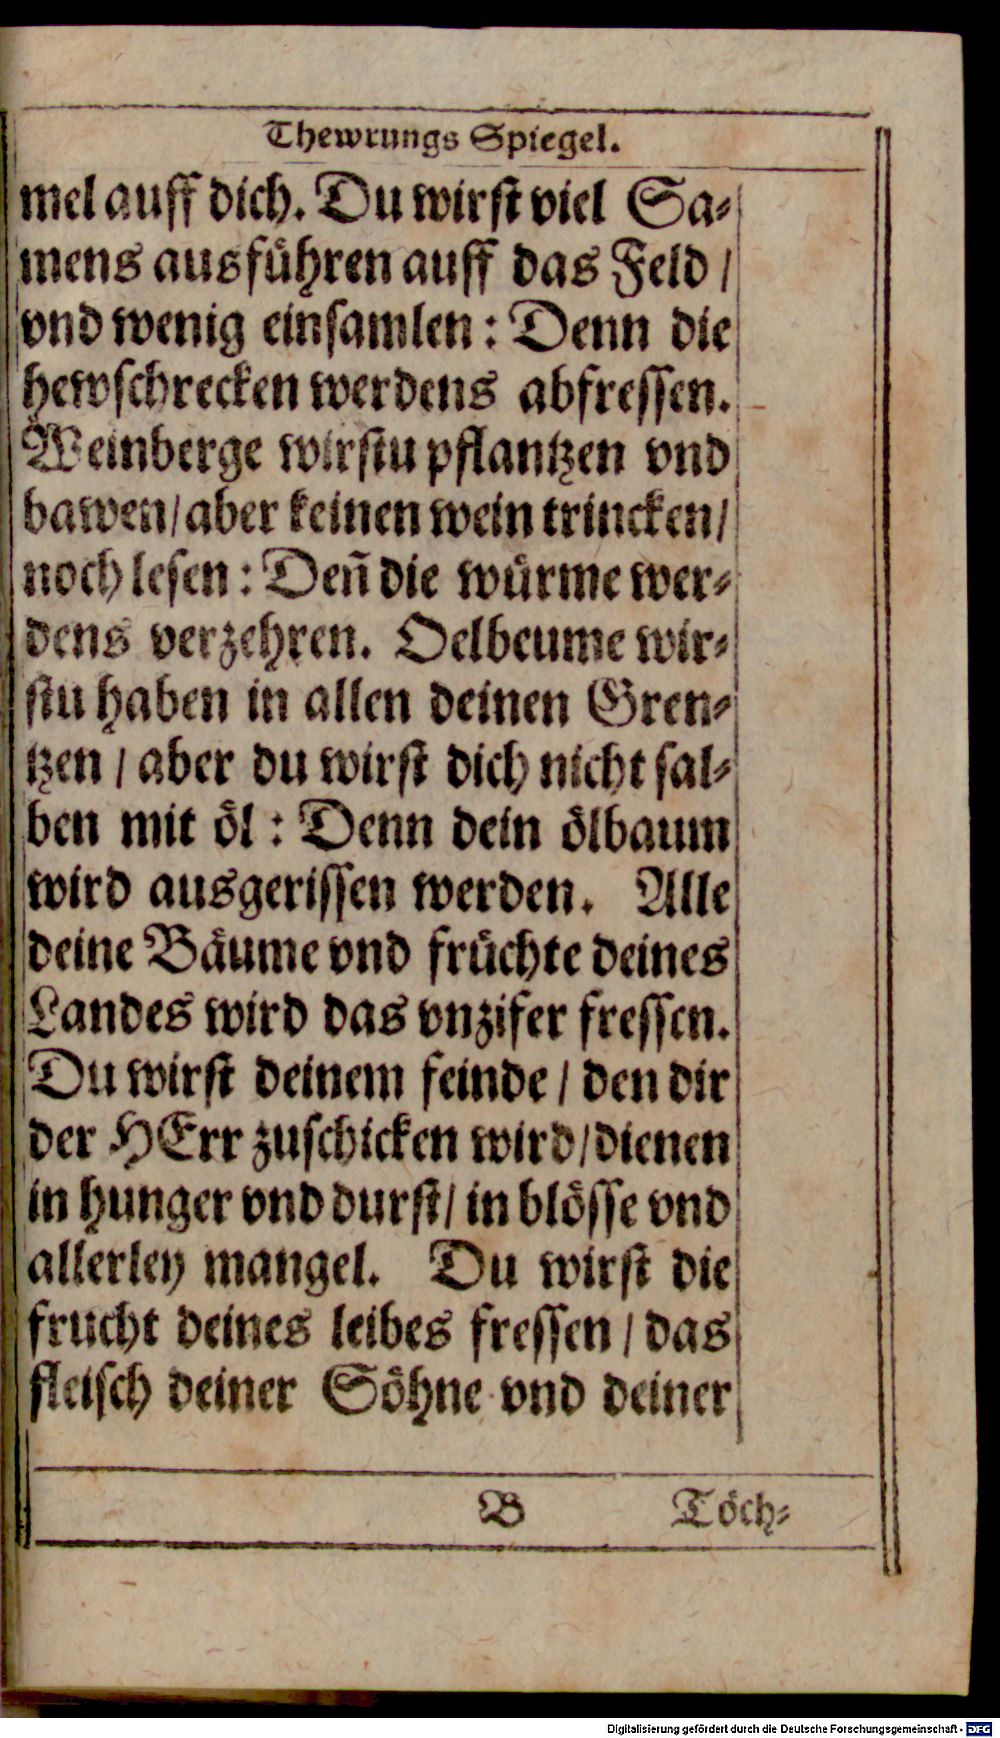 Thewrungs Spiegel.
mel auff dich. Du wirst viel Sa⸗
mens ausführen auff das Feld /
vnd wenig einsamlen : Denn die
hewschrecken werdens abfressen.
Weinberge wirstu pflantzen vnd
bawen / aber keinen wein trincken /
noch lesen : Den̄ die würme wer⸗
dens verzehren. Oelbeume wir⸗
stu haben in allen deinen Gren⸗
tzen / aber du wirst dich nicht sal⸗
ben mit öl : Denn dein ölbaum
wird ausgerissen werden. Alle
deine Bäume vnd früchte deines
Landes wird das vnzifer fressen.
Du wirst deinem feinde / den dir
der HErr zuschicken wird / dienen
in hunger vnd durst / in blösse vnd
allerley mangel. Du wirst die
frucht deines leibes fressen / das
fleisch deiner Söhne vnd deiner
B Töch⸗
Digitalisierung gefördert durch die Deutsche Forschungsgemeinschaft - DFG